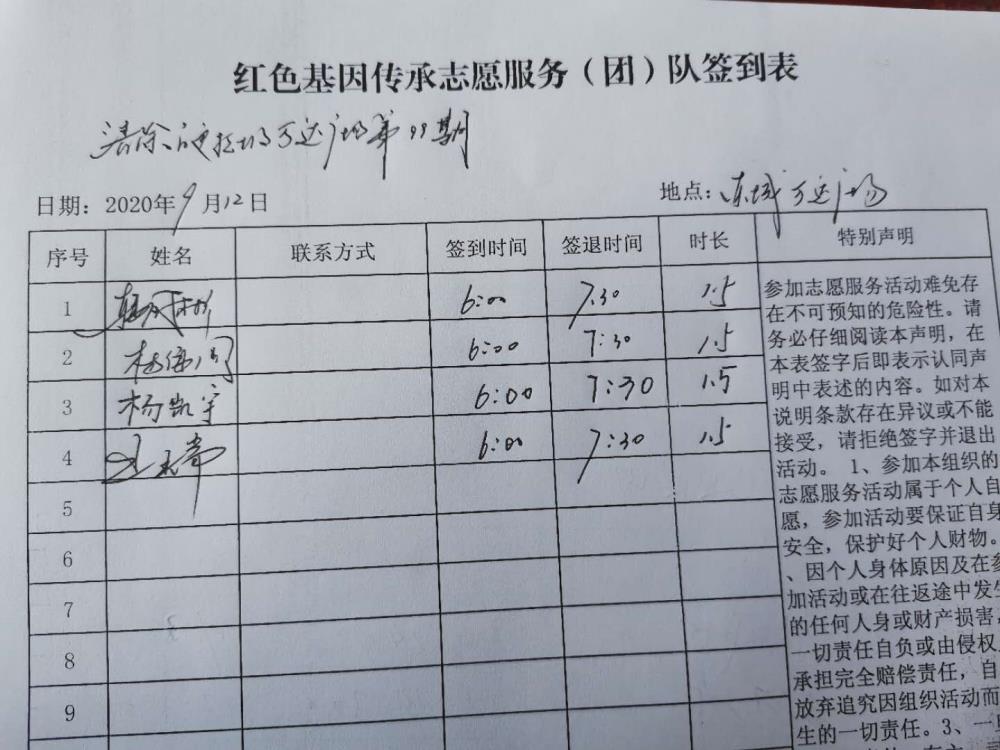 红色基因传承志愿服务（团）队签到表
清除白色垃圾万达广场第99期
日期：2020年9月12日
地点：东城万达广场
序号 姓名 联系方式 签到时间 签退时间 时长 特别声明
1 6:00 7:30 1.5
2 6:00 7:30 1.5
3 杨凯宇 6:00 7:30 1.5
4 6:00 7:30 1.5
5
6
7
8
9
参加志愿服务活动难免存
在不可预知的危险性。请
务必仔细阅读本声明，在
本表签字后即表示认同声
明中表述的内容。如对本
说明条款存在异议或不能
接受，请拒绝签字并退出
活动。 1、参加本组织的
志愿服务活动属于个人自
愿，参加活动要保证自身
安全，保护好个人财物。
、因个人身体原因及在参
加活动或在往返途中发生
的任何人身或财产损害，
一切责任自负或由侵权
承担完全赔偿责任，自
放弃追究因组织活动而
生的一切责任。3、一